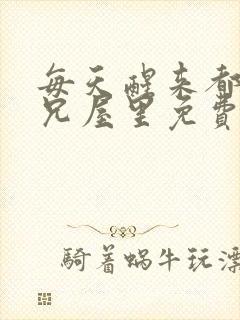 每天醒来都
兄屋里免費
騎着蝸牛玩漂